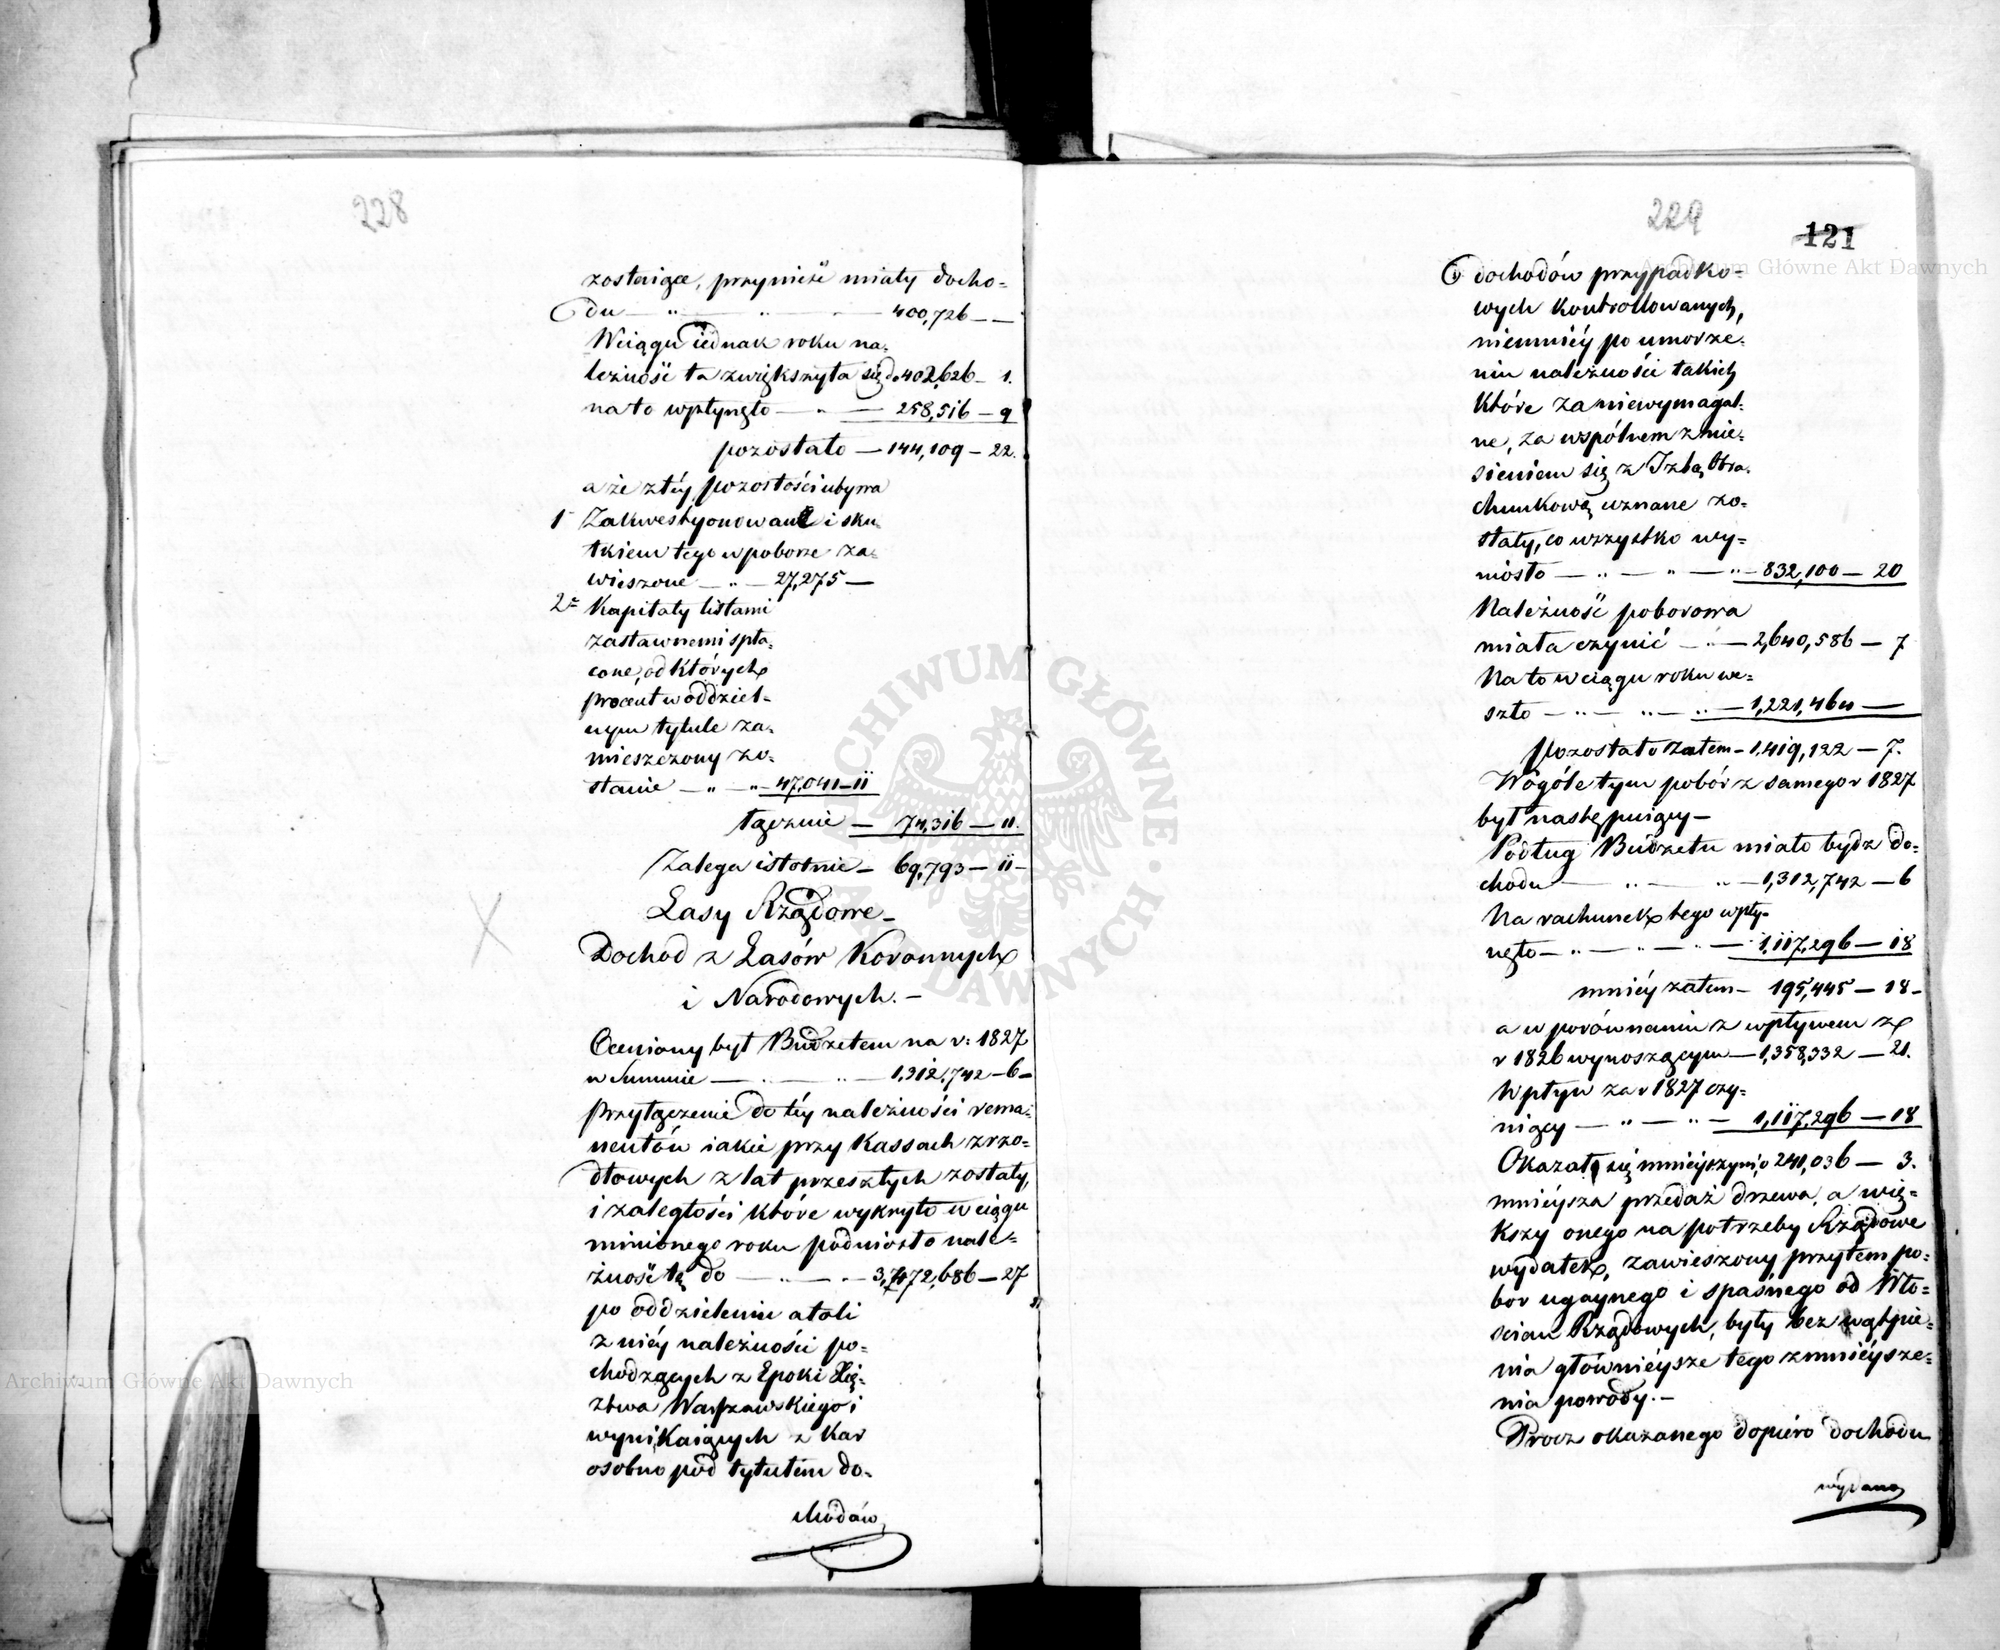 228
zostaiące, przynieść miały docho-
du — " — " — 400,726 — —
W ciągu iednak roku na-
leżność ta zwiększyła się do 402,626 — 1.
na to wpłynęło — " — 258,516 — 9
pozostało — 144,109 — 22.
a że z téy pozostości ubywa
1° Zakwestyonowane i sku-
tkiem tego w poborze za-
wieszone — " — 27,275 —
2° Kapitały listami
zastawnemi spła-
cone, od których
procent w oddziel-
nym tytule za-
mieszczony zo-
stanie — " — " — 47,041 — 11
łącznie — 74,316 — 11.
Zalega istotnie — 69,793 — 11 —
Lasy Rządowe —
Dochod z Lasów Koronnych
i Narodowych. —
Oceniony był Budżetem na r: 1827
w Summie — " — " — 1,312,742 — 6 —
przyłączenie do téy należności rema-
nentów iakie przy Kassach zrzo-
dłowych z lat przeszłych zostały,
i zaległości które wykryto w ciągu
minionego roku podniosło nale-
żność tę do — " — 3,472,686 — 27
po oddzieleniu atoli
z niéy należności po-
chodzących z Epoki Xię-
ztwa Warszawskiego i
wynikaiących z kar
osobno pod tytułem do-
chodów
229
121
dochodów przypadko-
wych kontrollowanych,
niemniéy po umorze-
niu należności takich
które za niewymagal-
ne, za wspólnem znie-
sieniem się z Izbą Obra-
chunkową uznane zo-
stały, co wszystko wy-
niosło — " — " — " — 832,100 — 20
Należność poborowa
miała czynić — " — 2,640,586 — 7
Na to w ciągu roku we-
szło — " — " — " — 1,221,464 —
pozostało zatem — 1,419,122 — 7.
W ogóle tym pobór z samego r 1827
był następuiący —
Podług Budżetu miało bydz do-
chodu — " — " — 1,312,742 — 6
Na rachunek tego wpły-
nęło — " — " — " — 1,117,296 — 18
mniéy zatem — 195,445 — 18 —
a w porównaniu z wpływem z
r 1826 wynoszącym — 1,358,332 — 21.
Wpływ za r 1827 czy-
niący — " — " — 1,117,296 — 18
Okazał się mnieyszym o 241,036 — 3.
mnieysza przedaż drzewa, a wię-
kszy onego na potrzeby Rządowe
wydatek, zawieszony przytem po-
bor ugaynego i spaśnego od Wło-
scian Rządowych, były bez wątpie-
nia główniéysze tego zmniéysze-
nia powody. —
Procz okazanego dopiero dochodu
wydano
ARCHIWUM GŁÓWNE AKT DAWNYCH
Archiwum Główne Akt Dawnych
Archiwum Główne Akt Dawnych